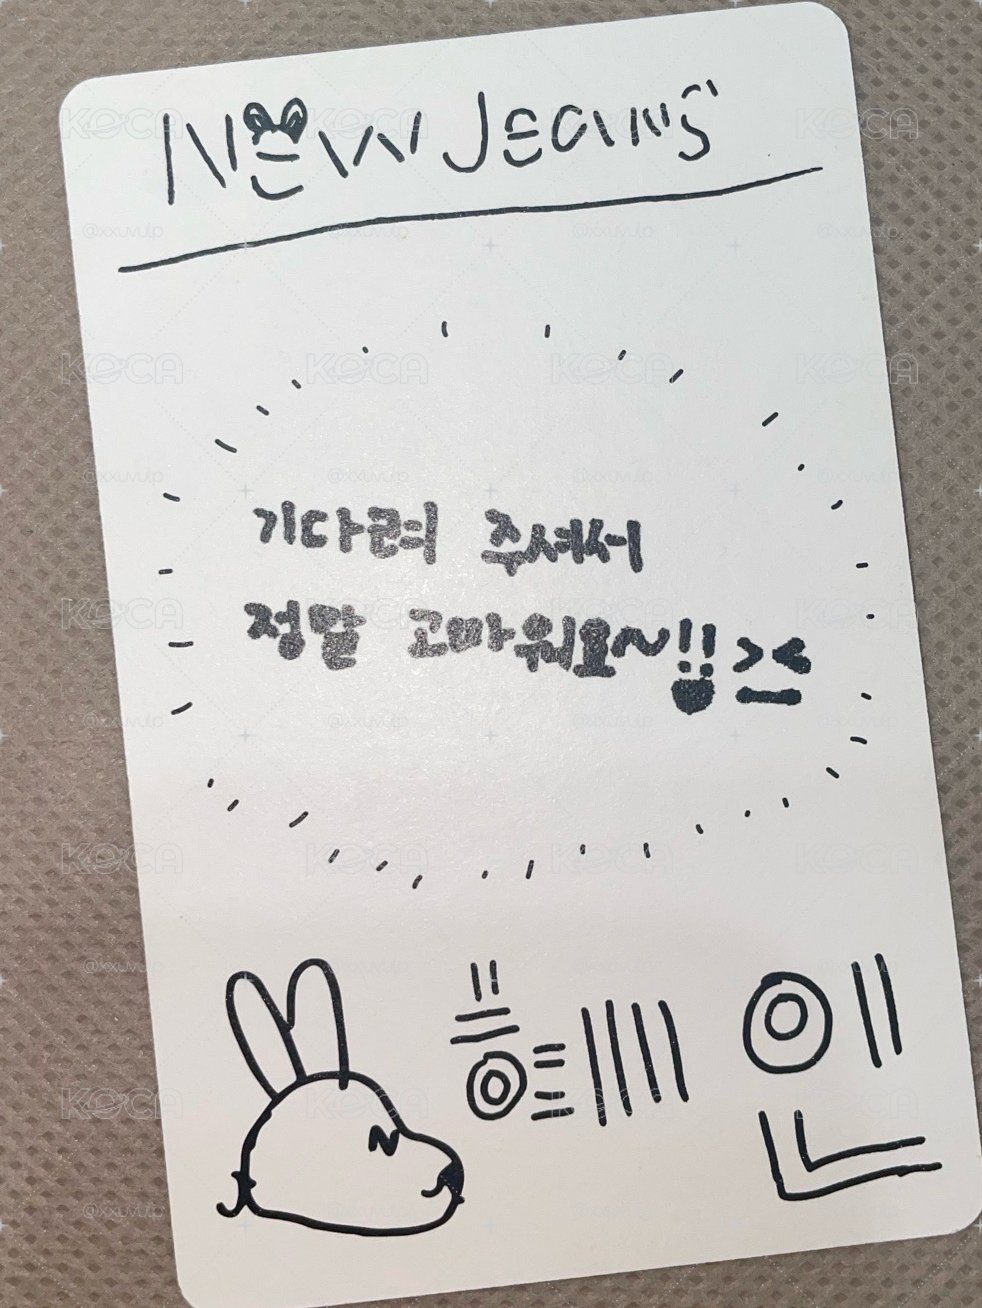 NewJeans
기다려 주셔서
정말 고마워요~!! ><
혜인
KOCA
@xxuvulp